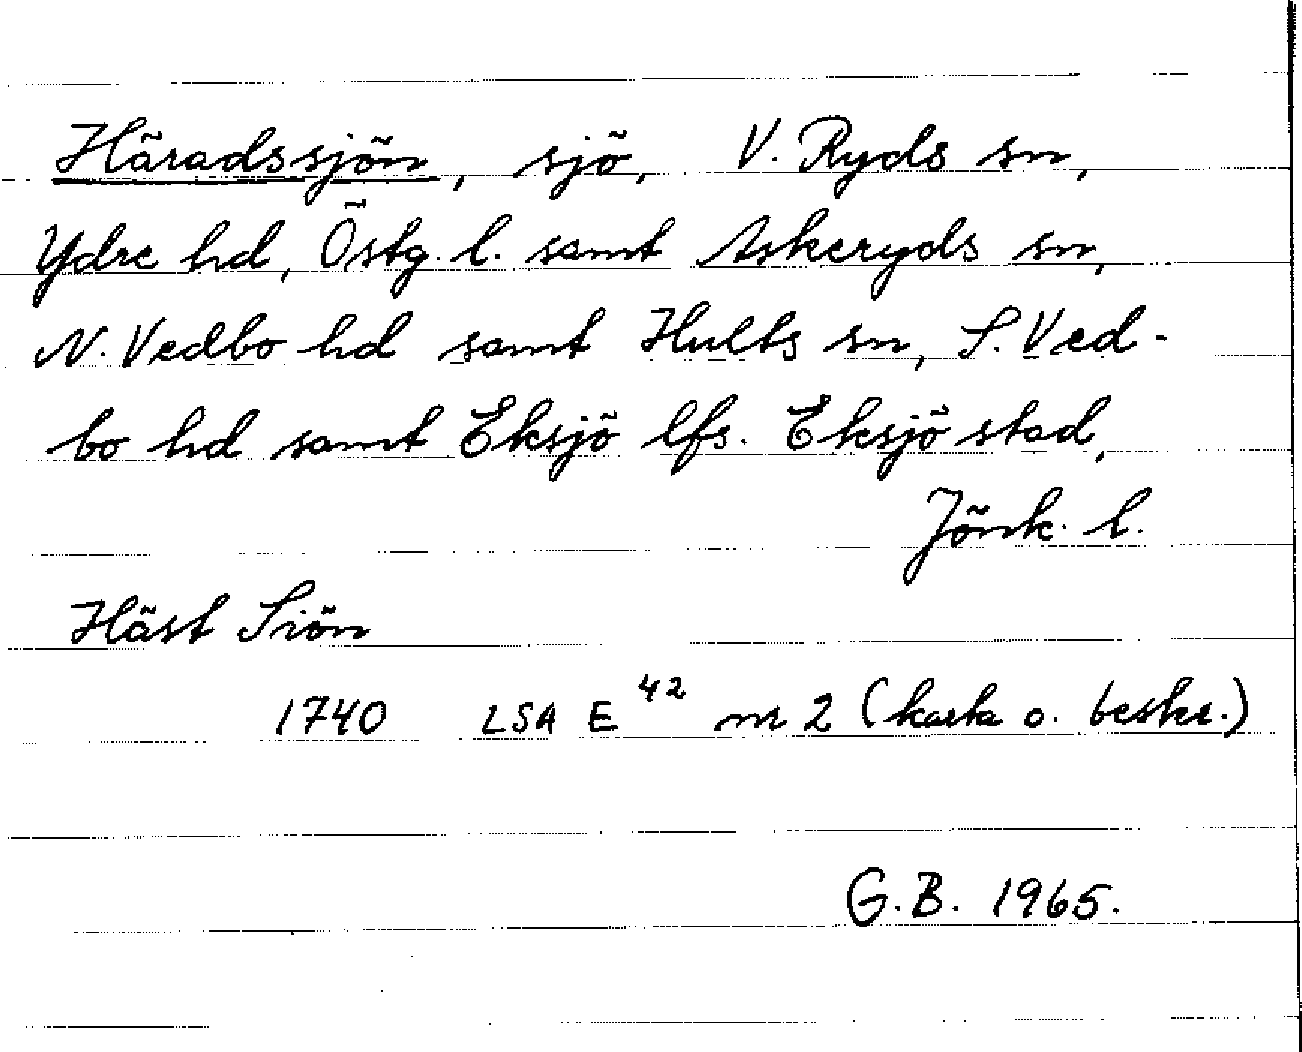 Häradssjön, sjö, V. Ryds sn,
Ydre hd, Östg. l. samt Askeryds sn,
N. Vedbo hd samt Hults sn, S. Ved-
bo hd samt Eksjö lfs. Eksjö stad,
Jönk. l.
Häst Siön
1740 LSA E 42 nr 2 (karta o. beskr.)
G.B. 1965.